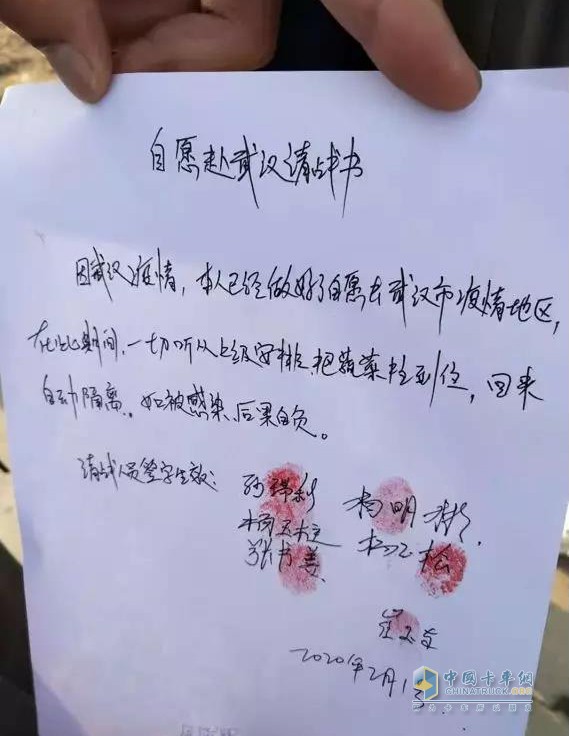 自愿赴武汉请战书
因武汉疫情，本人已经做好了自愿去武汉市疫情地区，
在此期间，一切听从上级安排，把蔬菜拉到位，回来
自动隔离，如被感染，后果自负。
请战人员签字生效：
孙瑞利 杨明彬
杨玉柱
张书美 松
崔
2020年2月1
中国卡车网
CHINATRUCK.ORG